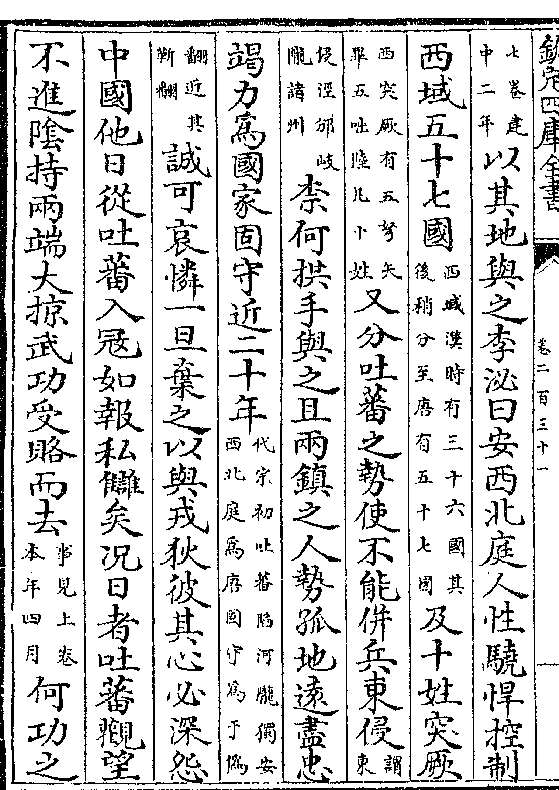 欽定四庫全書 卷二百三十一
七卷建中二年以其地與之李泌曰安西北庭人性驍悍控制
西域五十七國西域漢時有三十六國其後稍分至唐有五十七國及十姓突厥
西突厥有五弩矢畢五吐陸凡十姓又分吐蕃之勢使不能併兵東侵謂東
侵涇邠岐隴諸州柰何拱手與之且兩鎮之人勢孤地遠盡忠
竭力爲國家固守近二十年代宗初吐蕃陷河隴獨安西北庭爲唐固守爲于僞
翻近其靳翻誠可哀憐一旦棄之以與戎狄彼其心必深怨
中國他日從吐蕃入寇如報私讎矣况日者吐蕃觀望
不進陰持兩端大掠武功受賂而去事見上卷本年四月何功之